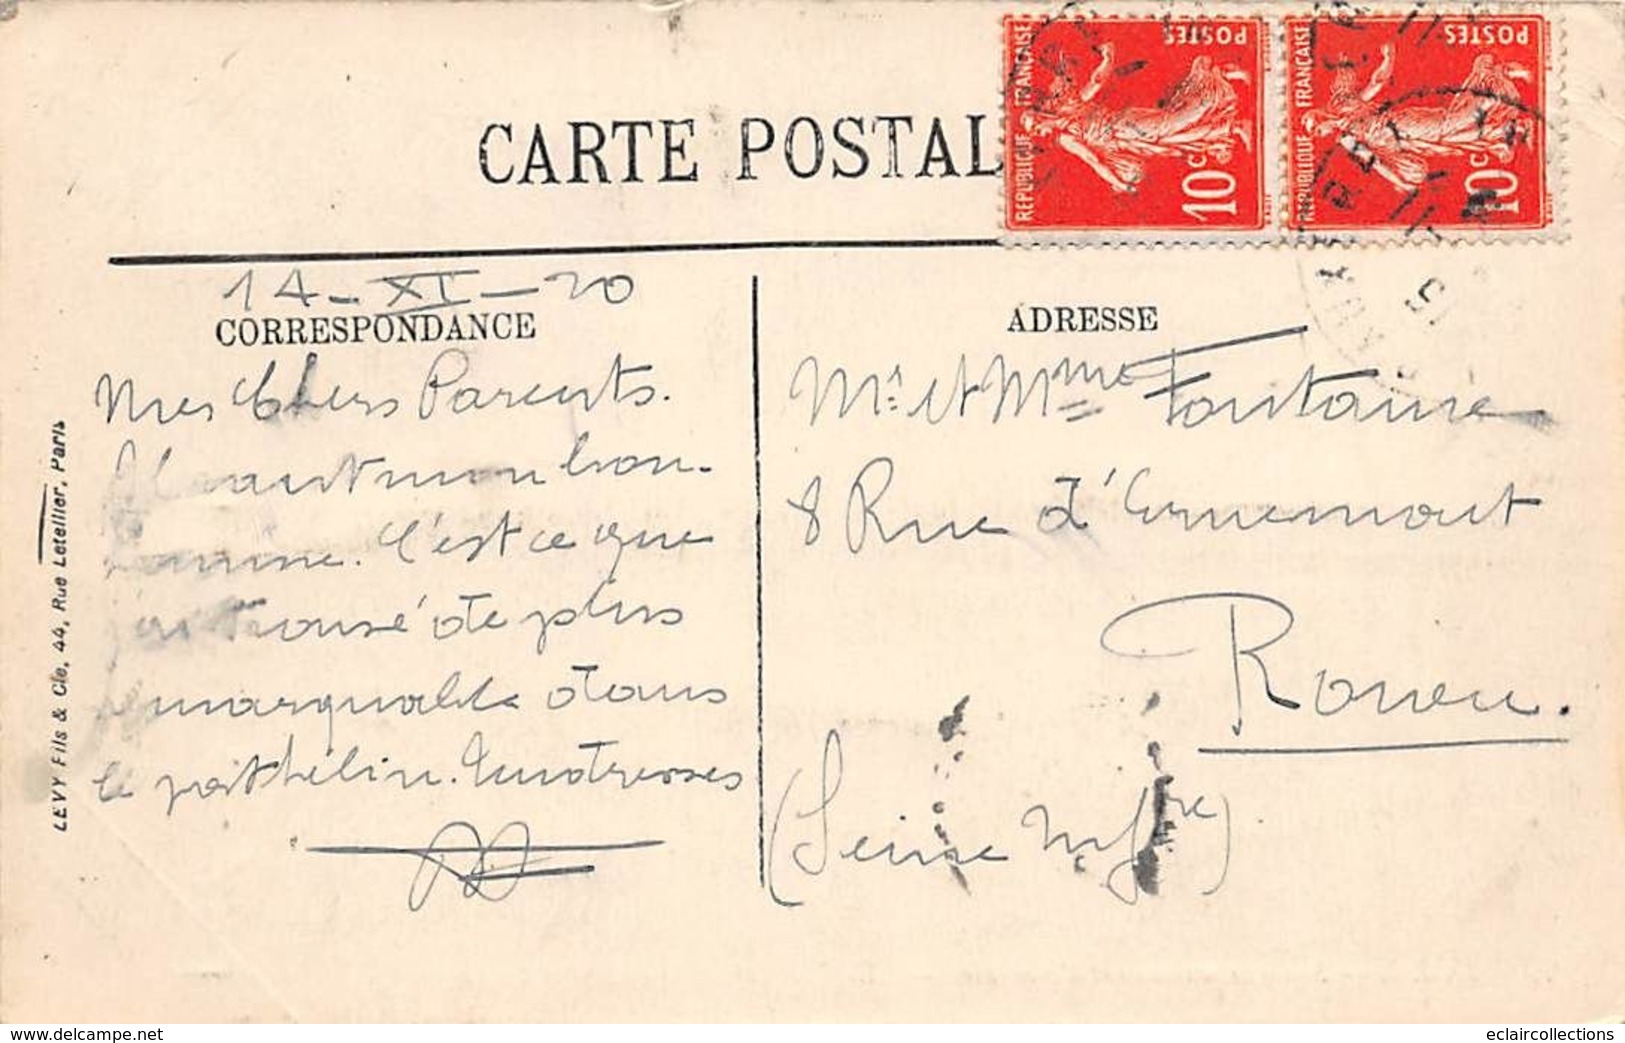 CARTE POSTALE
REPUBLIQUE FRANÇAISE
POSTES
10c
REPUBLIQUE FRANÇAISE
POSTES
10c
14-XI-20
CORRESPONDANCE
Mes Chers Parents.
mon bon-
C'est ce que
j'ai trouvé de plus
remarquable dans
le patelin.
ADRESSE
Mr. et Mme Fontaine
8 Rue d'Ernemont
Rouen.
(Seine Infre)
LEVY Fils & Cie, 44, Rue Letellier, Paris
www.delcampe.net
eclaircollections